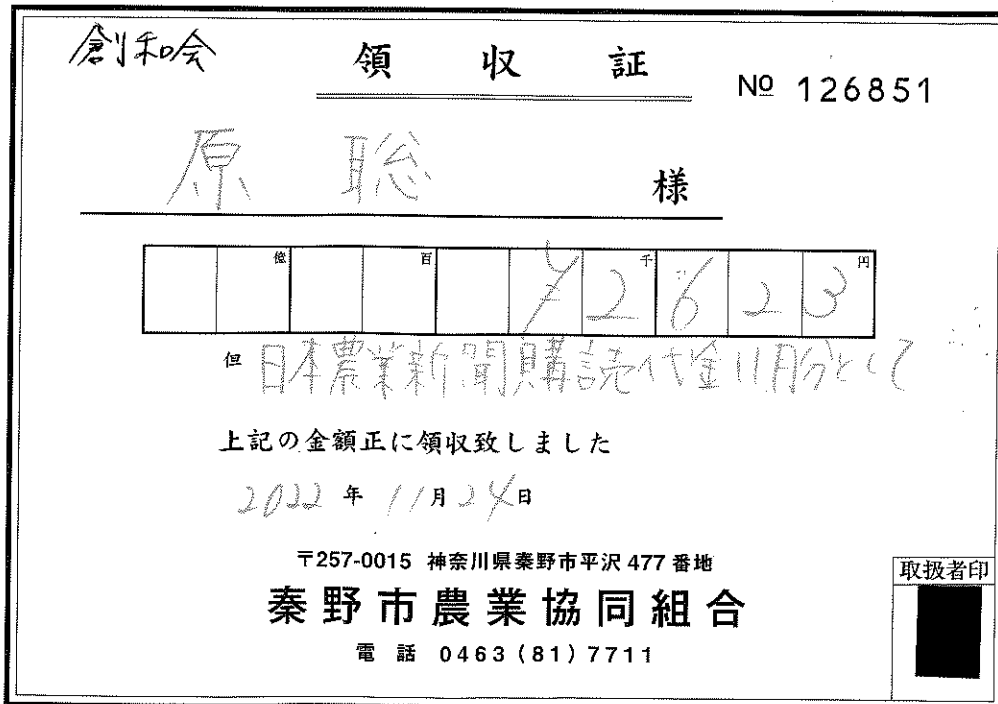 創和会
領収証
№ 126851
原 聡 様
億 百 千 円
¥2623
但 日本農業新聞購読代金11月分として
上記の金額正に領収致しました
2022年 11月24日
〒257-0015 神奈川県秦野市平沢477番地
秦野市農業協同組合
電話 0463(81)7711
取扱者印